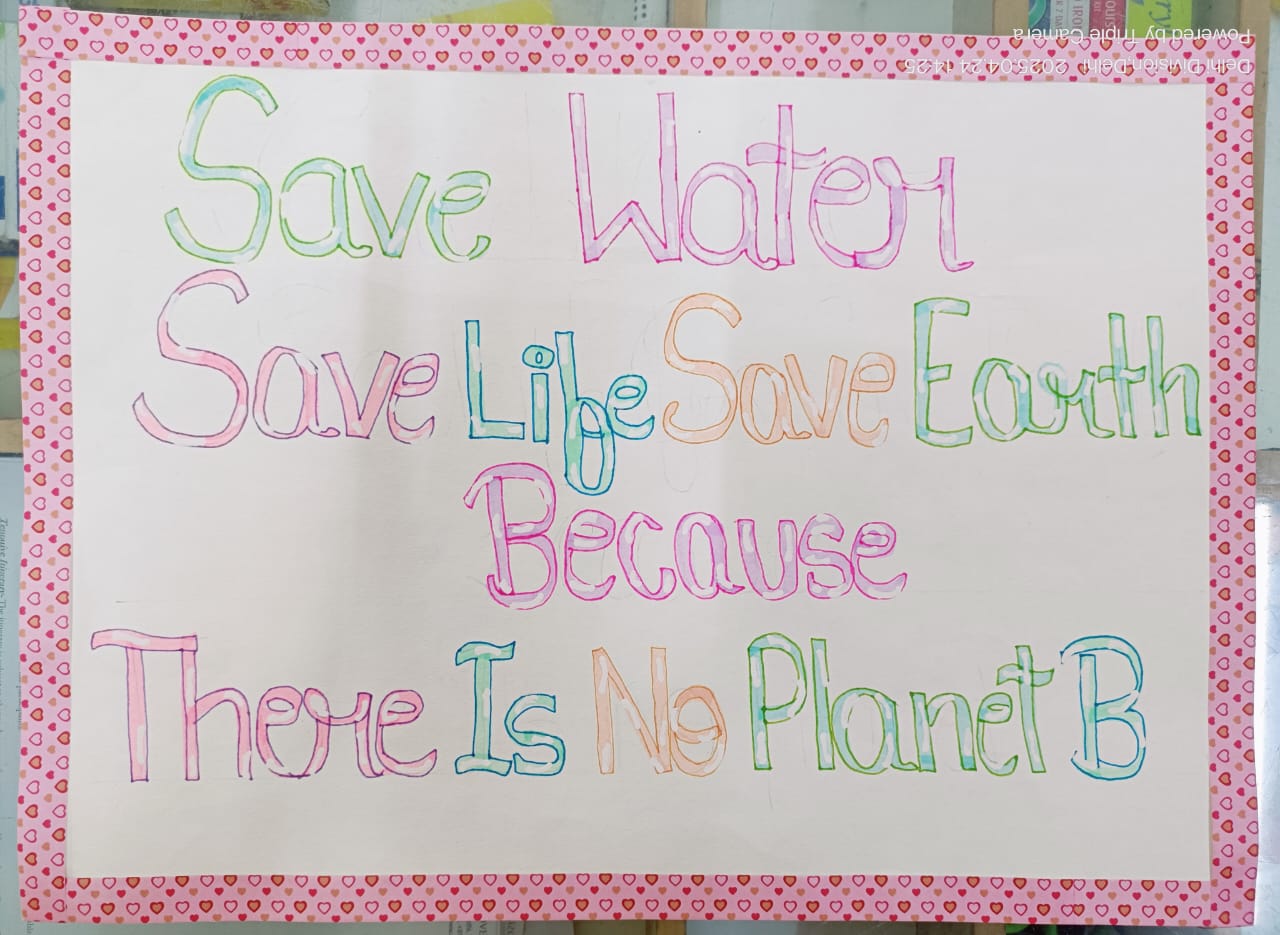 Save Water
Save Life Save Earth
Because
There Is No Planet B
Delhi Division,Delhi 2025.04.24 14:25
Powered by Triple Camera